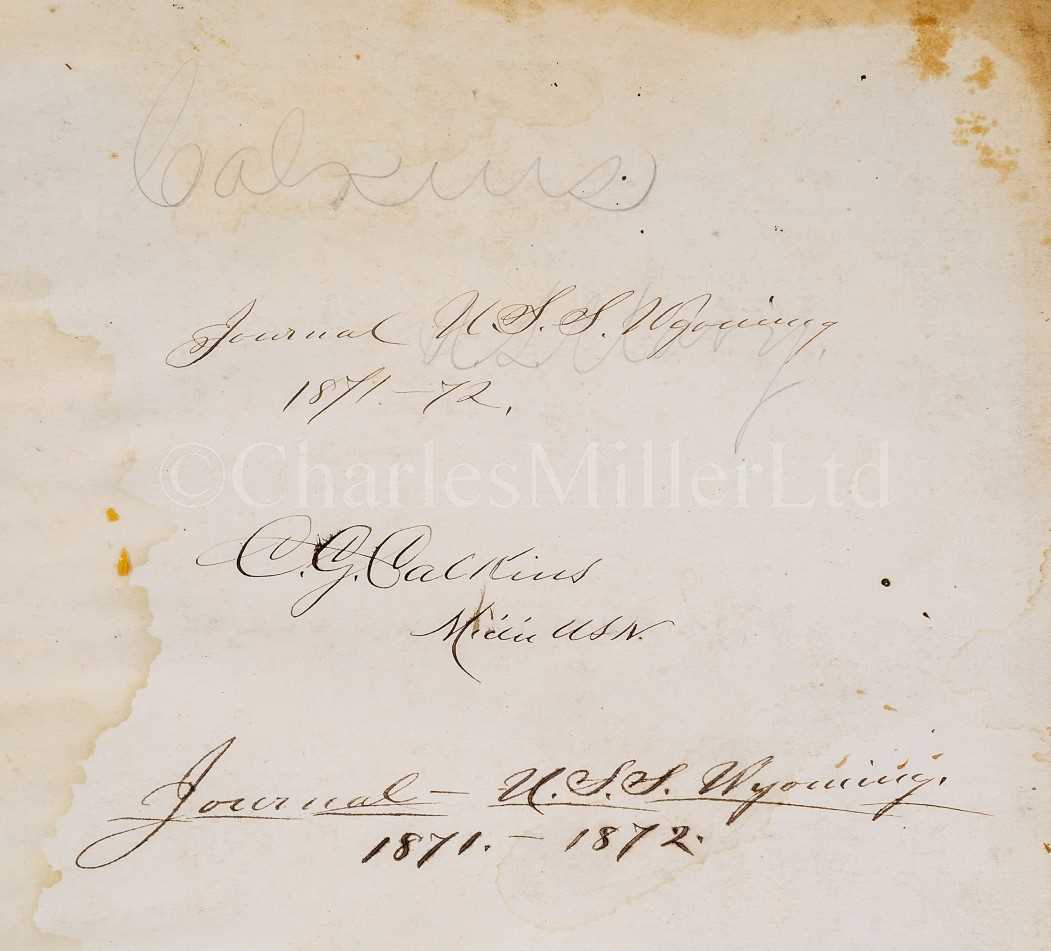 Calkins
Journal U.S.S. Wyoming,
1871.-72.
©CharlesMillerLtd
C.G. Calkins
USN.
Journal - U.S.S. Wyoming.
1871. - 1872.